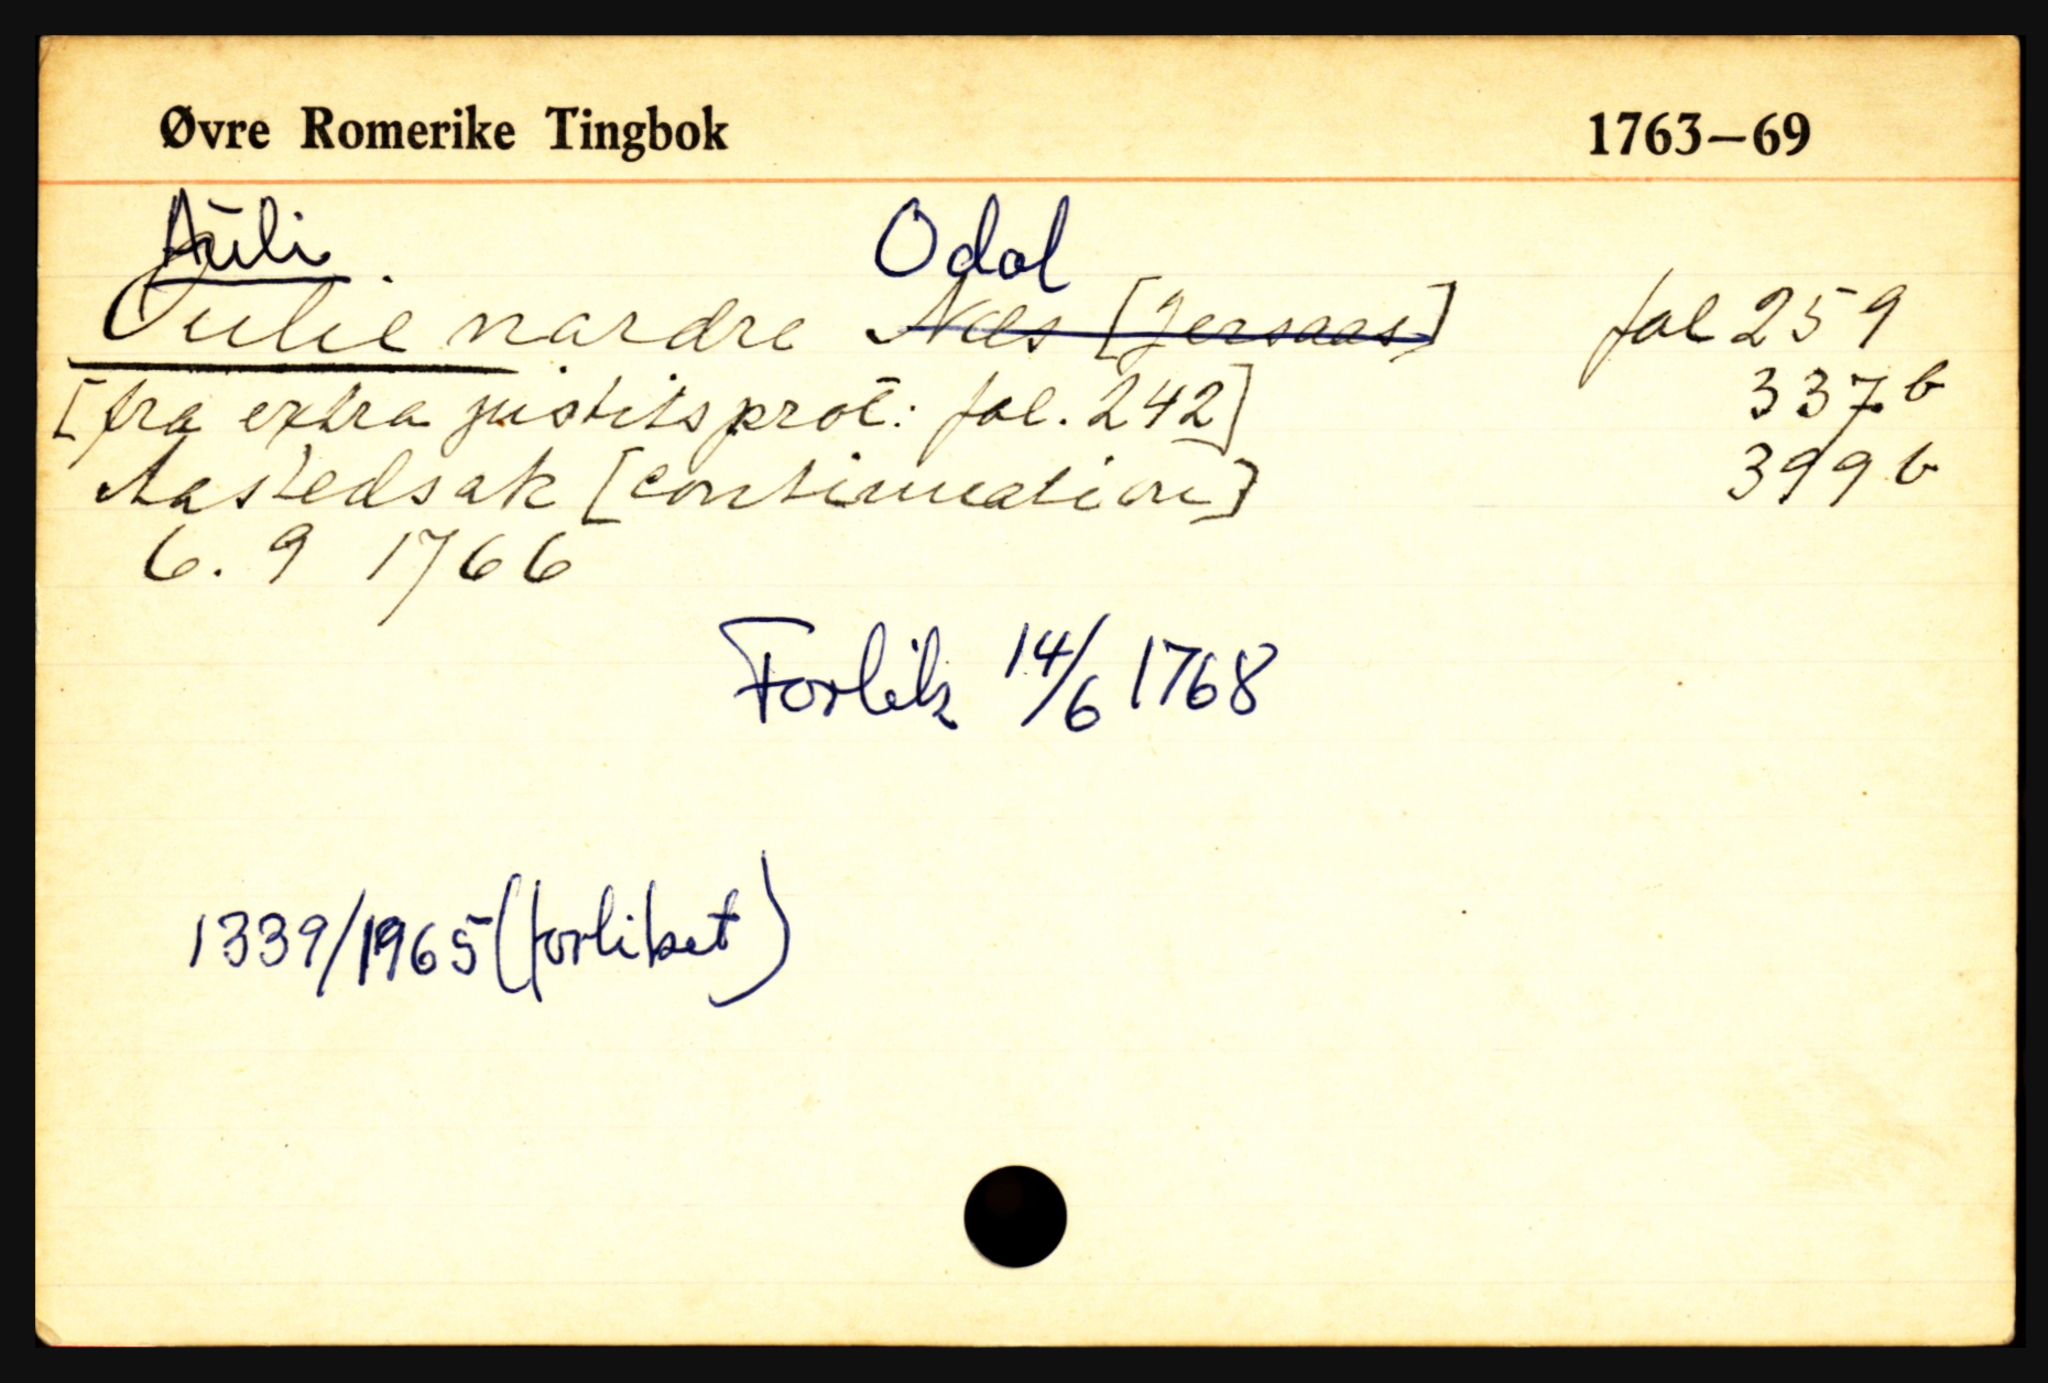 Øvre Romerike Tingbok 1763–69
Auli Odal
Oulie nordre Nes [Jersaas] fol 259
[fra extra justitsprot: fol. 242] 337b
Aastedsak [continuation] 399b
6. 9 1766
Forlik 14/6 1768
1339/1965 (forliket)